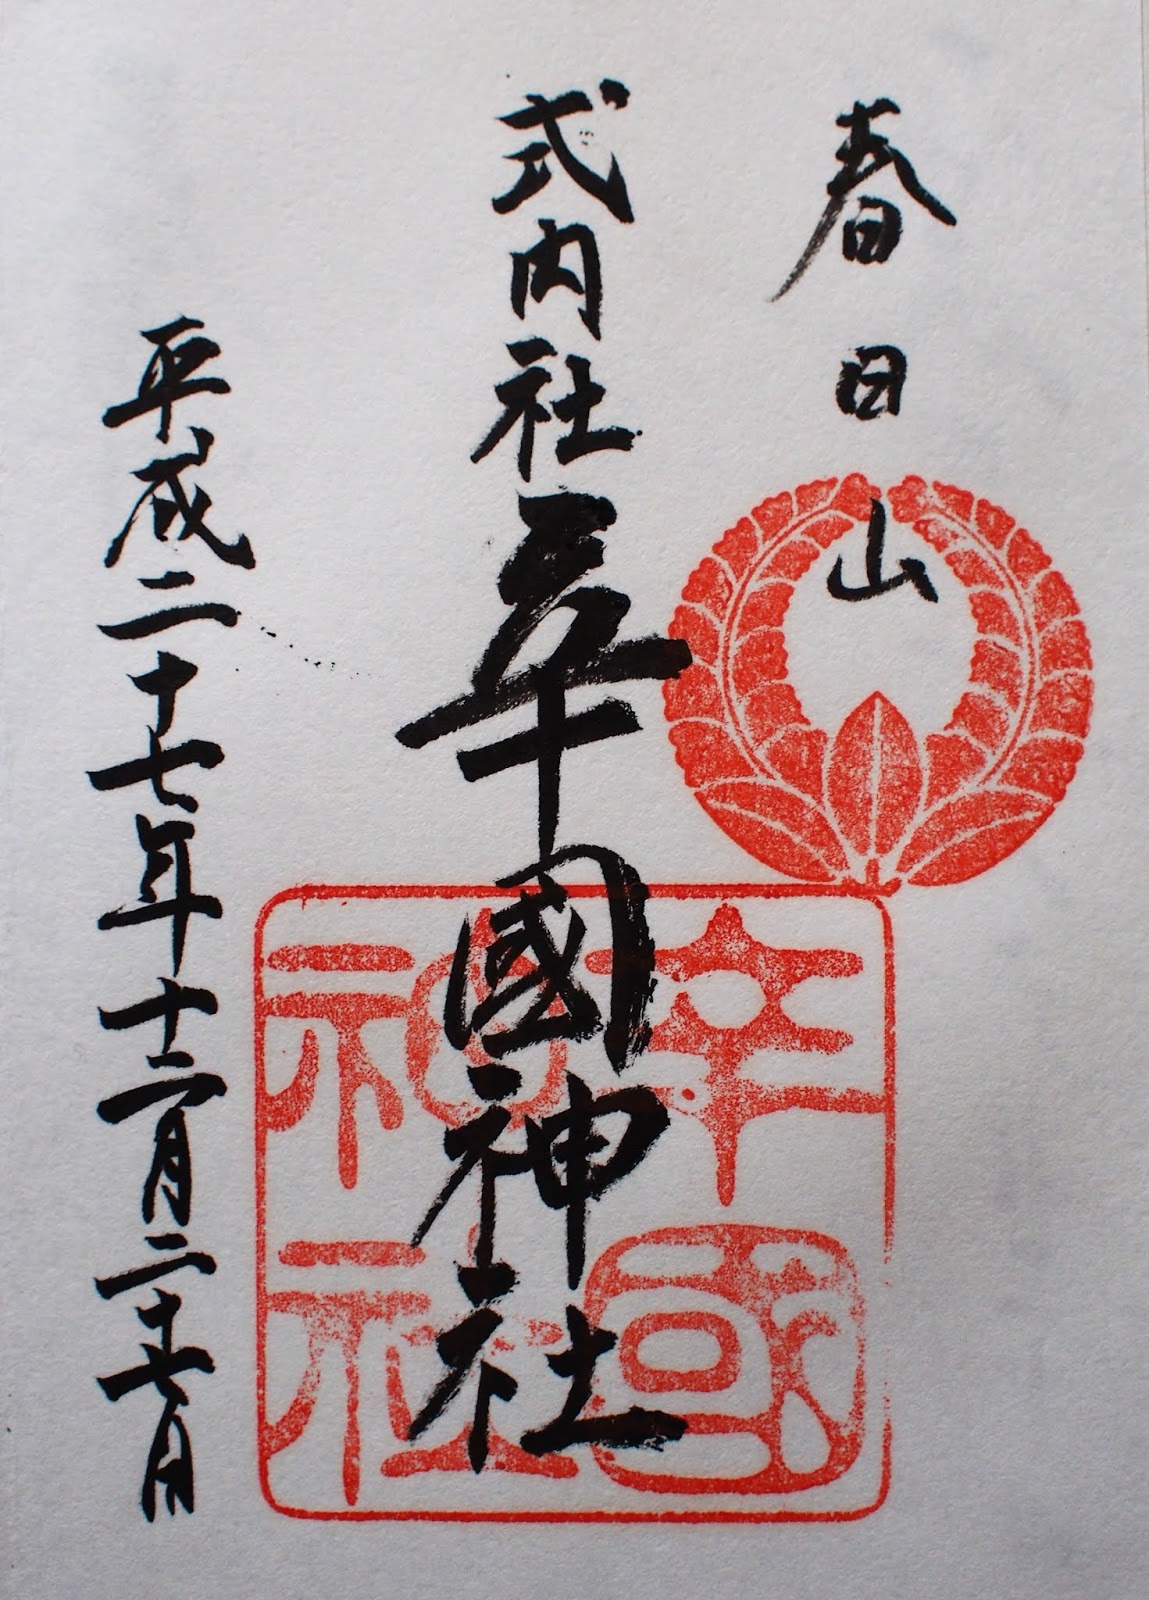 春日山
式内社辛國神社
平成二十七年十二月二十七日
辛國
神社